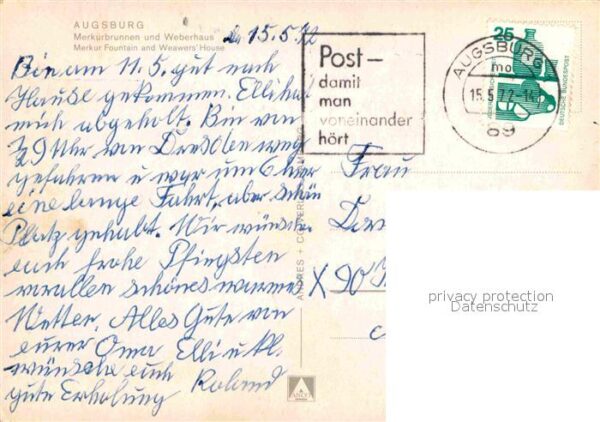 AUGSBURG
Merkurbrunnen und Weberhaus
Merkur Fountain and Weawers' House
d. 15.5.72
Bin am 11.5. gut nach
Hause gekommen. Elli hat
mich abgeholt. Bin von
½9 Uhr von Dresden weg
gefahren u war um 6 hier
eine lange Fahrt, aber schön
Platz gehabt. Wir wünschen
euch frohe Pfingsten
vorallen schönes warmes
Wetter. Alles Gute von
eurer Oma Elli u kl.
wünsche euch Roland
gute Erholung
Post–
damit
man
voneinander
hört
AUGSBURG
mo
15.5.72-14
89
25
DEUTSCHE BUNDESPOST
ANDRES + CO VERLAG
Frau
X 90
ANCO
privacy protection
Datenschutz